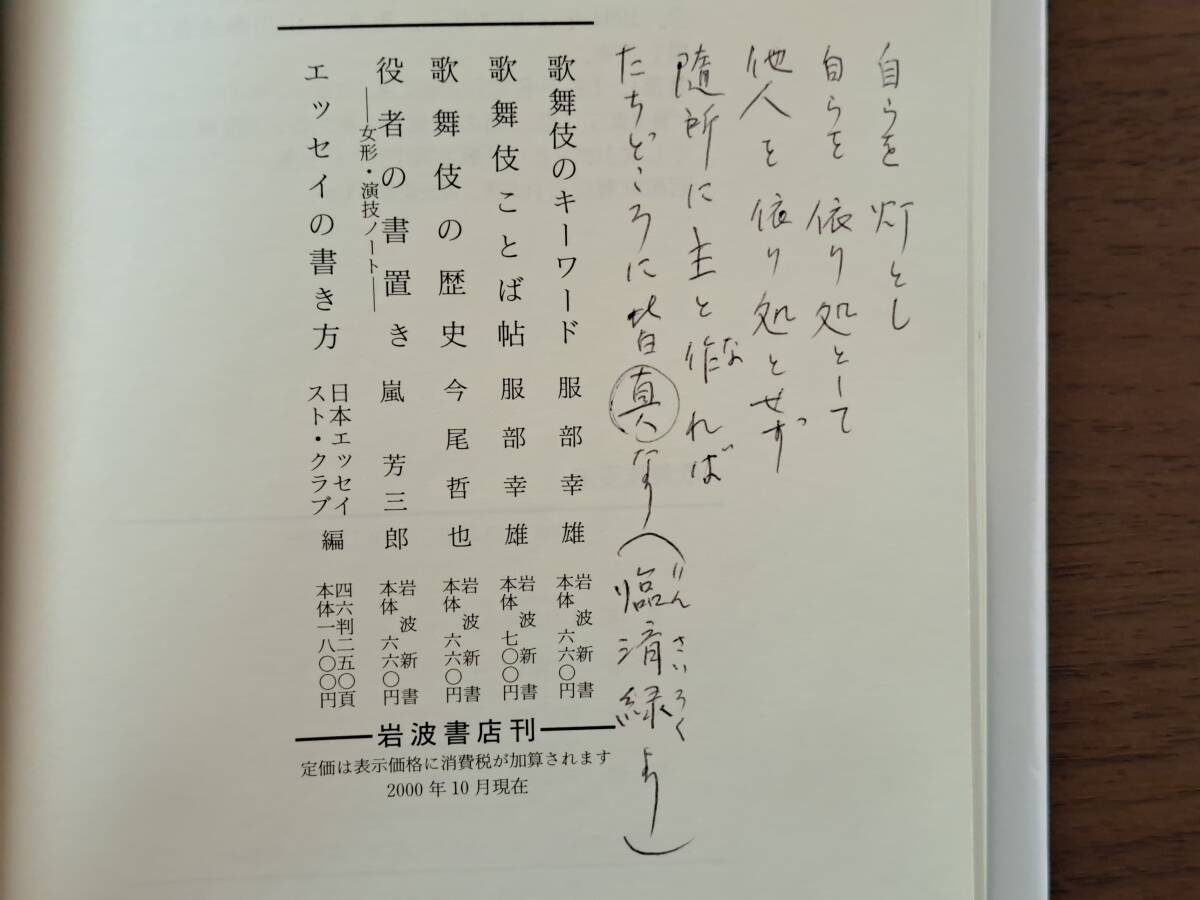 自らを灯とし
自らを依り処として
他人を依り処とせず
隨所に主と作れば
な
たちどころに皆真なり(臨済緑より)
りんさいろく
歌舞伎のキーワード 服部幸雄 岩波新書 本体六六〇円
歌舞伎ことば帖 服部幸雄 岩波新書 本体七〇〇円
歌舞伎の歴史 今尾哲也 岩波新書 本体六六〇円
役者の書置き 嵐芳三郎 岩波新書 本体六六〇円
――女形・演技ノート――
エッセイの書き方 日本エッセイスト・クラブ編 四六判二五〇頁 本体一八〇〇円
岩波書店刊
定価は表示価格に消費税が加算されます
2000年10月現在